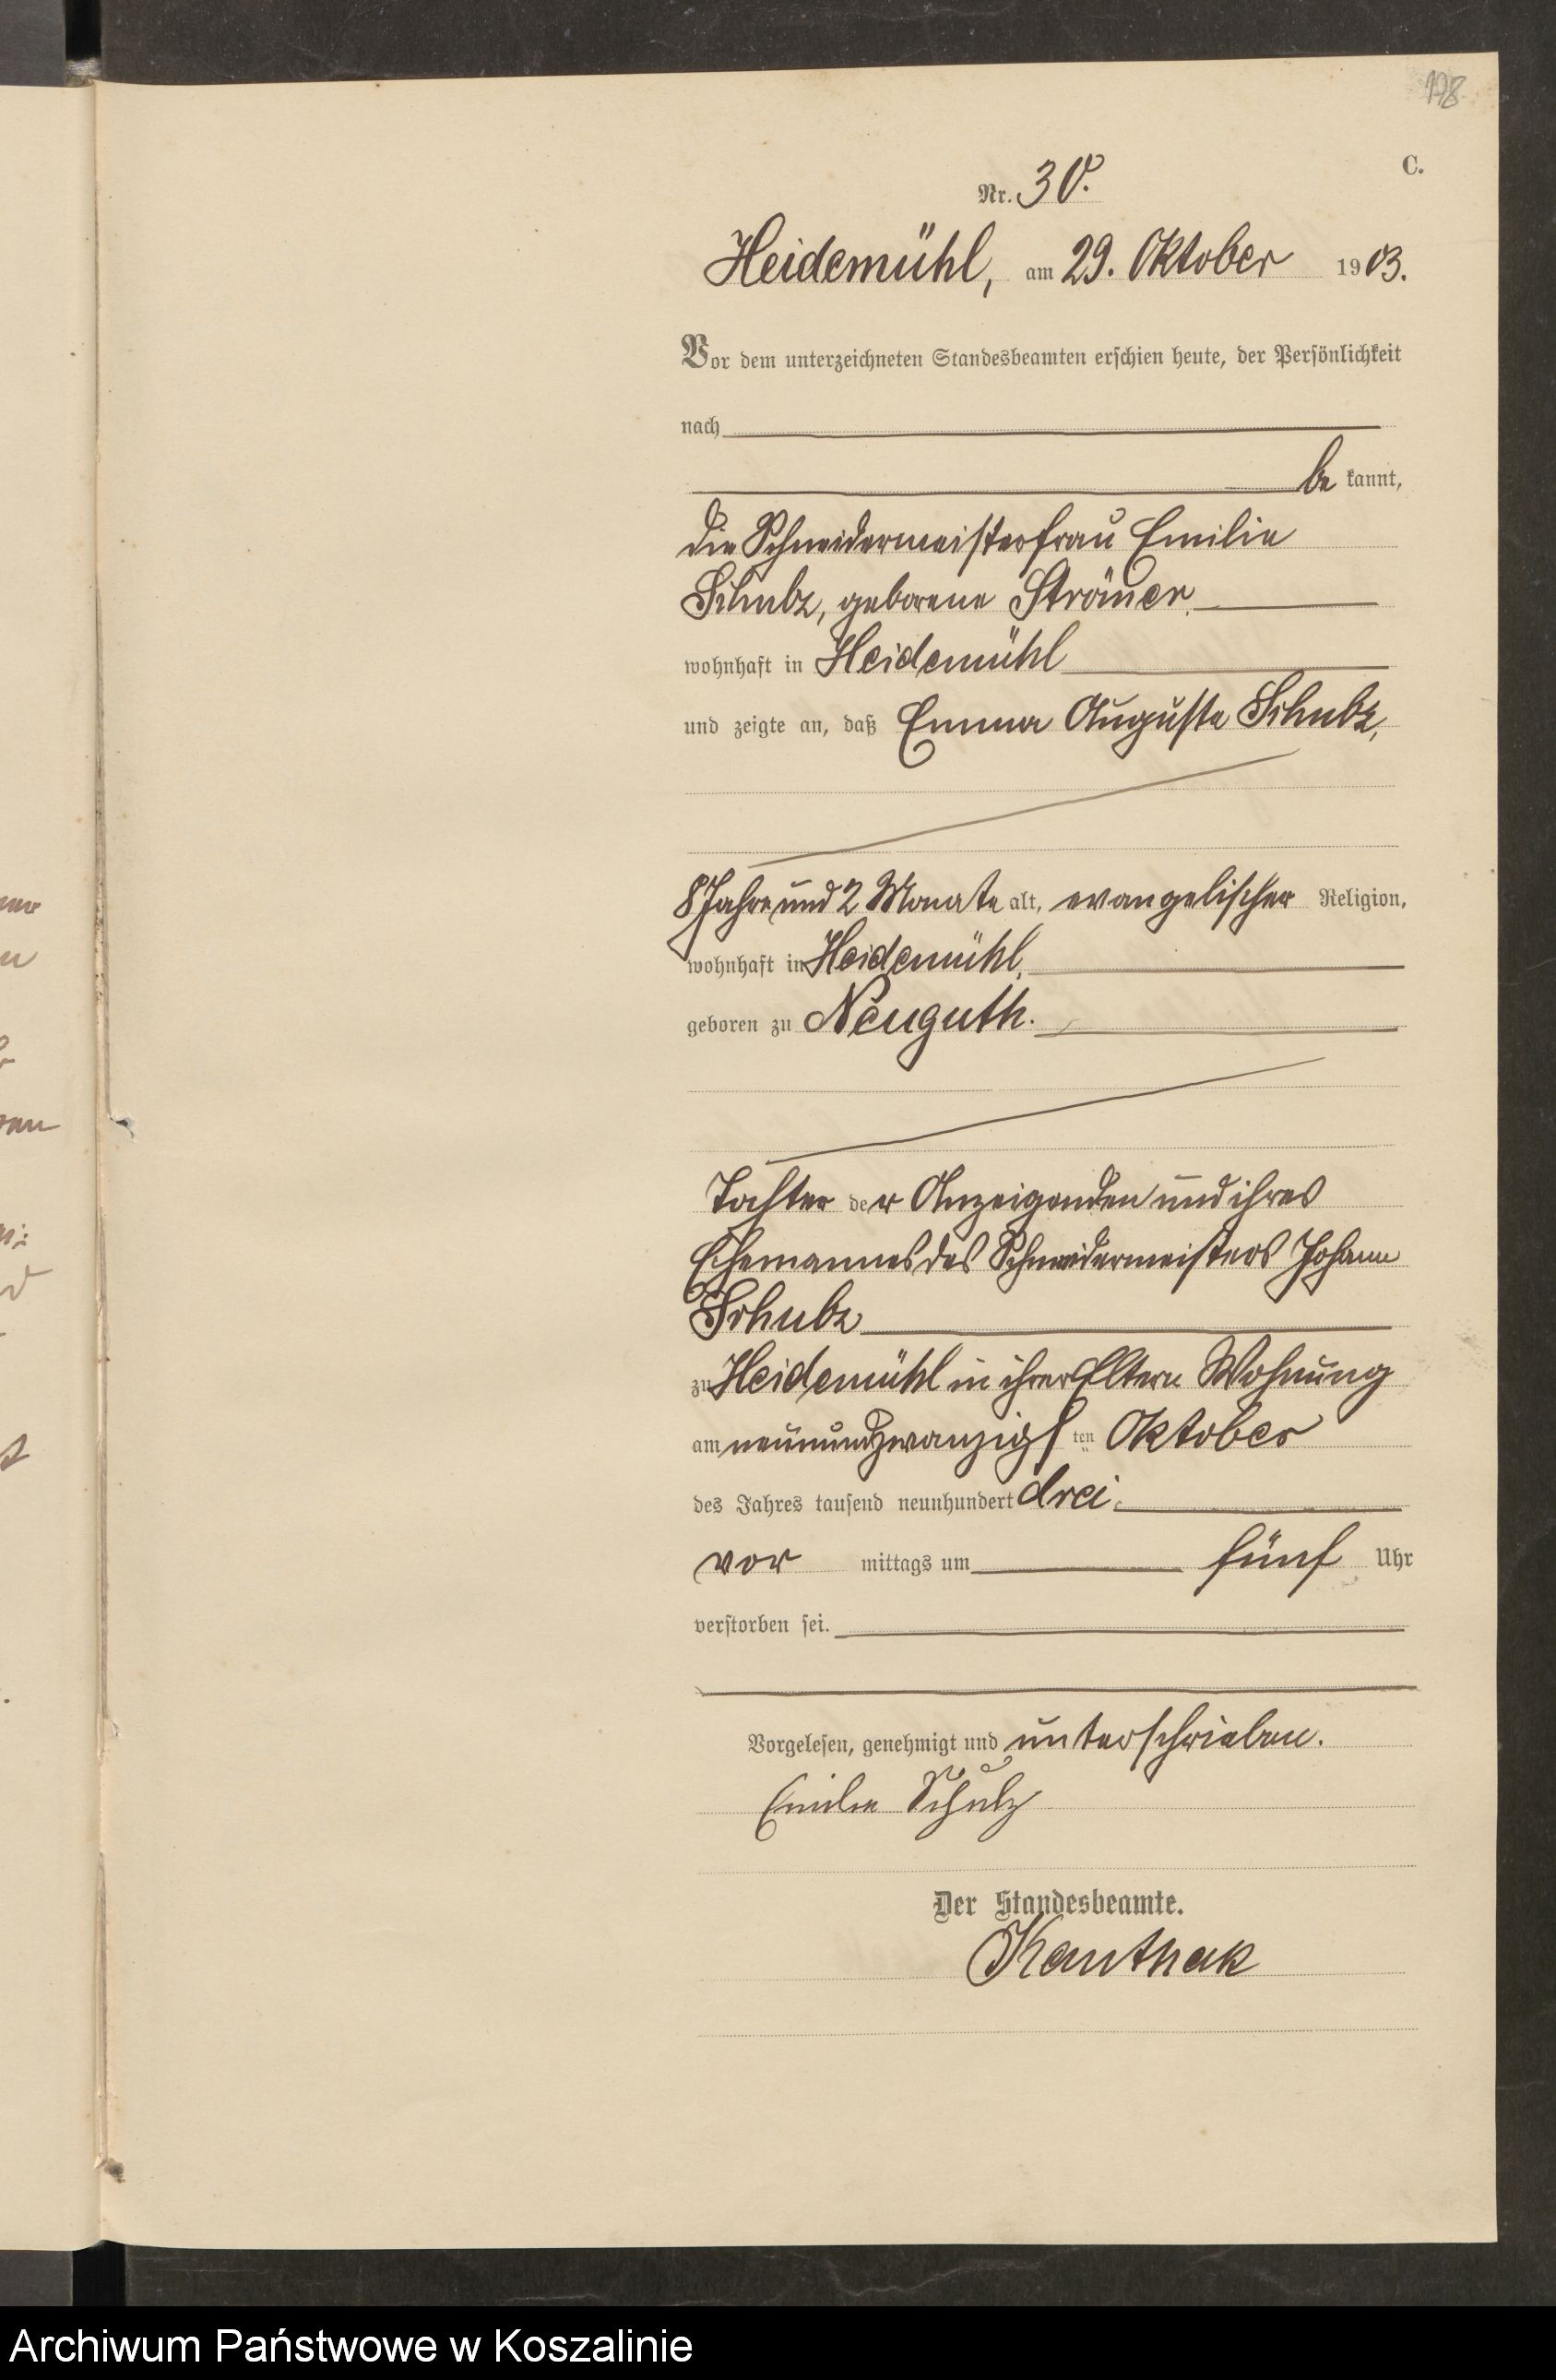 178
C.
Nr. 30.
Heidemühl, am 29. Oktober 1903.
Vor dem unterzeichneten Standesbeamten erschien heute, der Persönlichkeit
nach
be kannt,
die Schneidermeisterfrau Emilie
Schulz, geborene Sträuer
wohnhaft in Heidemühl
und zeigte an, daß Emma Auguste Schulz,
8 Jahre und 2 Monate alt, evangelischer Religion,
wohnhaft in Heidemühl,
geboren zu Neuguth.
Tochter der Anzeigenden und ihres
Ehemannes des Schneidermeisters Johann
Schulz
zu Heidemühl in ihrer Eltern Wohnung
am neunundzwanzigsten Oktober
des Jahres tausend neunhundert drei
vor mittags um fünf Uhr
verstorben sei.
Vorgelesen, genehmigt und unterschrieben.
Emilie Schulz
Der Standesbeamte.
Kanthak
Archiwum Państwowe w Koszalinie